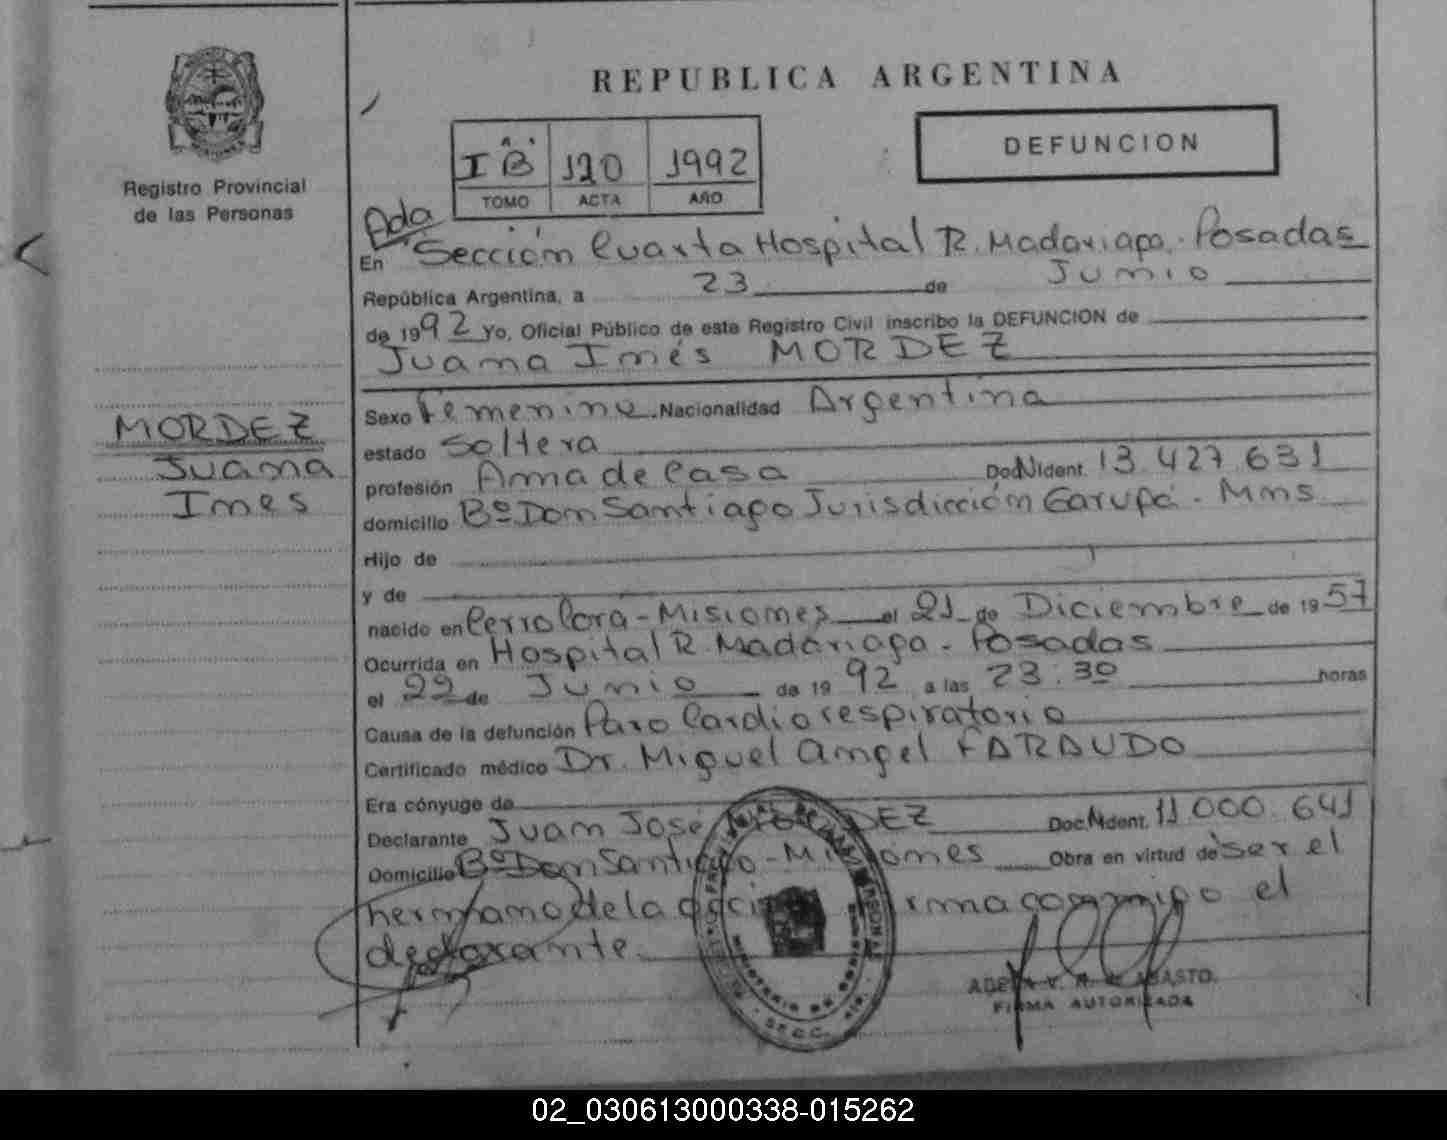 REPUBLICA ARGENTINA
DEFUNCION
I B 120 1992
TOMO ACTA AÑO
Registro Provincial
de las Personas
MORDEZ
Juana
Ines
Ada
En Sección Cuarta Hospital R. Madariaga. Posadas
República Argentina, a 23 de Junio
de 1992 Yo, Oficial Público de este Registro Civil inscribo la DEFUNCION de
Juana Inés MORDEZ
Sexo Femenino. Nacionalidad Argentina
estado Soltera
profesión Ama de Casa Doc. N Ident. 13.427.631
domicilio Bº Don Santiago Jurisdicción Garupá - Mnes
Hijo de
y de
nacido en Cerro Corá - Misiones el 21 de Diciembre de 1957
Ocurrida en Hospital R. Madariaga - Posadas
el 22 de Junio de 1992 a las 23:30 horas
Causa de la defunción Paro Cardiorespiratorio
Certificado médico Dr. Miguel Angel FARAUDO
Era cónyuge de
Declarante Juan José MORDEZ Doc. N Ident. 11.000.641
Domicilio Bº Don Santiago - Misiones Obra en virtud de ser el
hermano de la occisa firma conmigo el
declarante.
ABASTO.
FIRMA AUTORIZADA
02_030613000338-015262